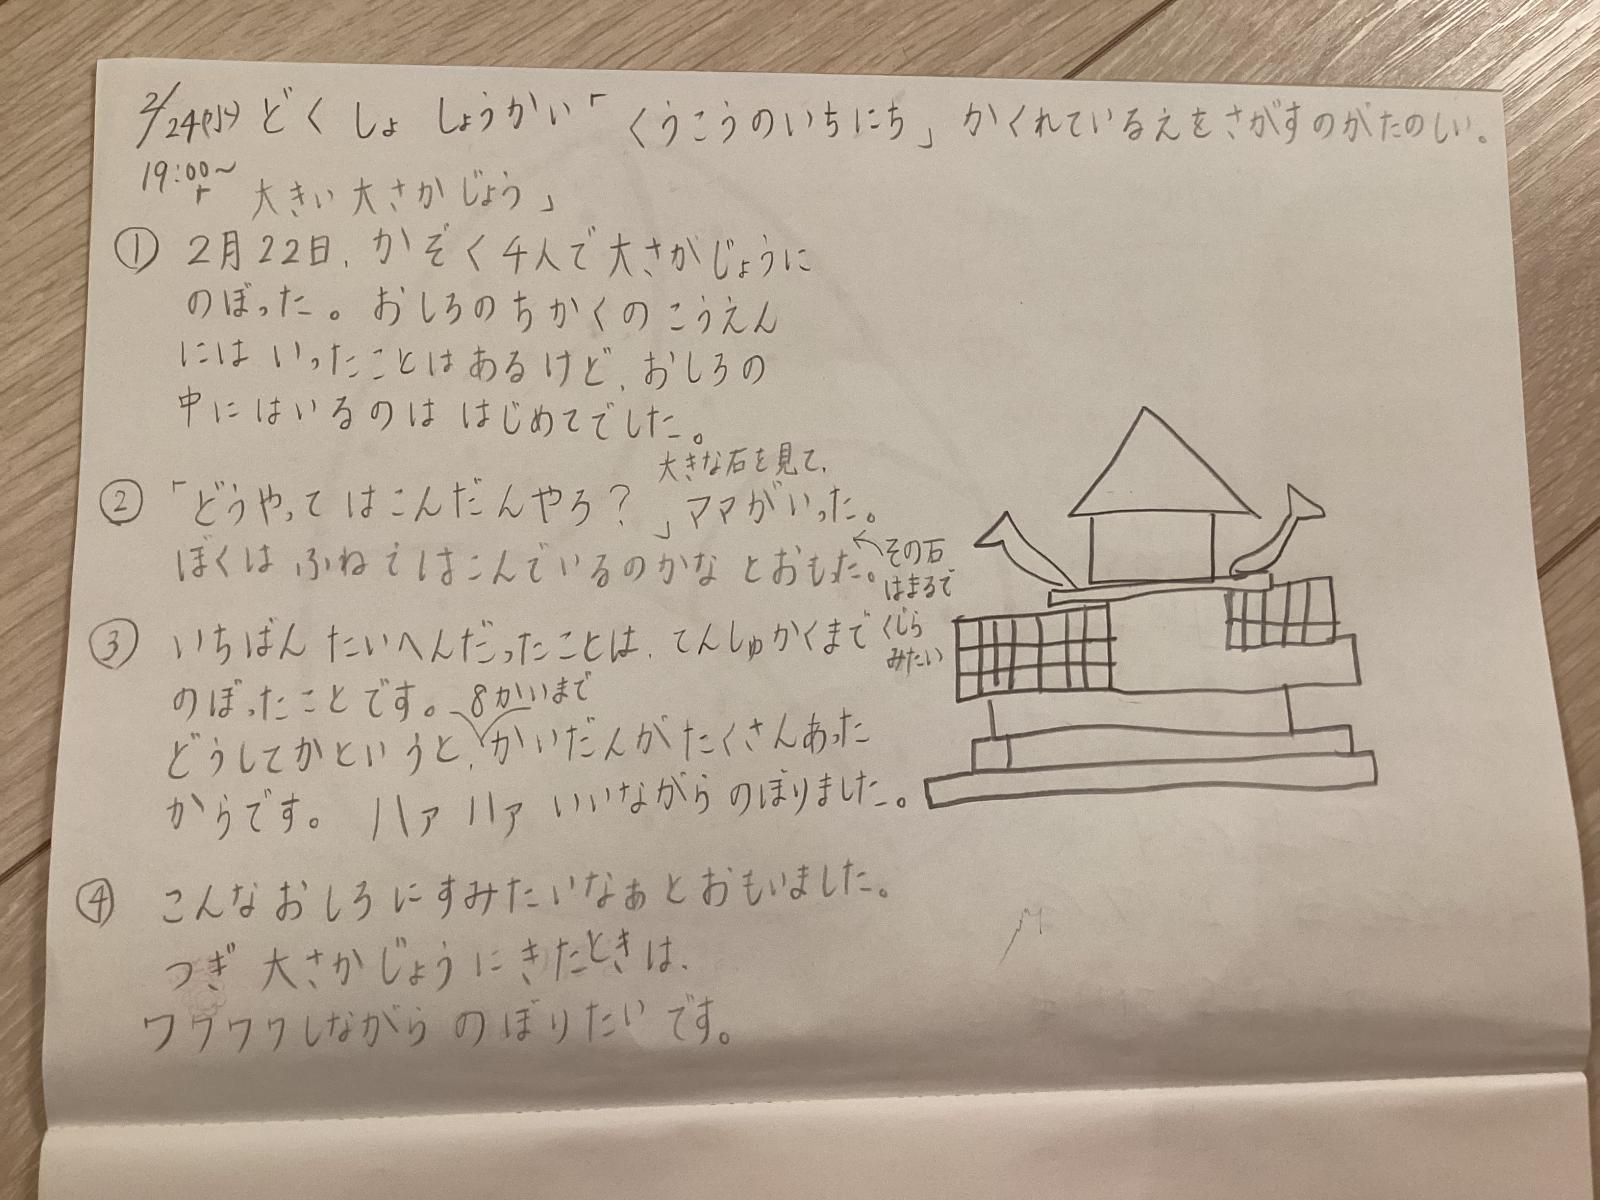 2/24(水) どくしょ しょうかい「くうこうのいちにち」かくれているえをさがすのがたのしい。
19:00〜
「大きい大さかじょう」
① 2月22日、かぞく4人で大さかじょうに
のぼった。おしろのちかくのこうえん
にはいったことはあるけど、おしろの
中にはいるのははじめてでした。
大きな石を見て、
② 「どうやってはこんだんやろ?」ママがいった。
ぼくはふねではこんでいるのかなとおもった。
その石
はまるで
くじら
みたい
③ いちばんたいへんだったことは、てんしゅかくまで
のぼったことです。
8かいまで
どうしてかというと、かいだんがたくさんあった
からです。ハァハァいいながらのぼりました。
④ こんなおしろにすみたいなぁとおもいました。
つぎ大さかじょうにきたときは、
ワクワクしながらのぼりたいです。